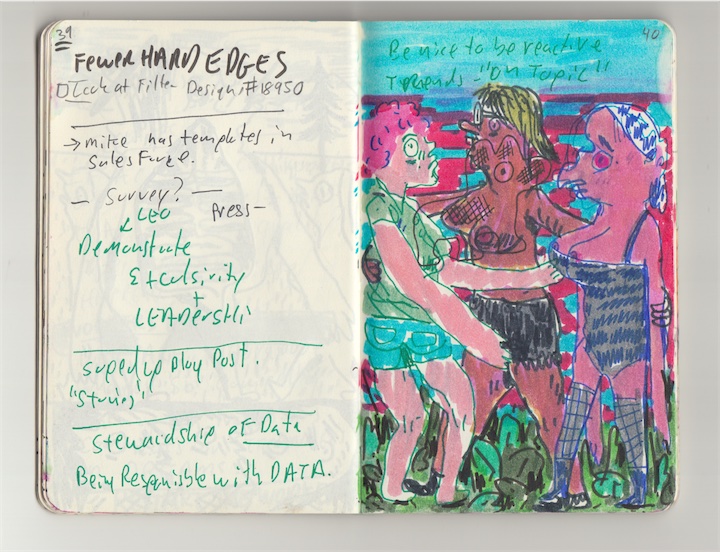 39
FEWER HARD EDGES
Look at Filter Design #18950
→ mike has templates in
Salesforce.
— Survey? —
CEO Press—
Demonstrate
+
LEADERSHI
Sped up Play Post.
"Stories"
Stewardship of Data
Being Responsible with DATA.
40
Be nice to be reactive
Trends - "On Topic"